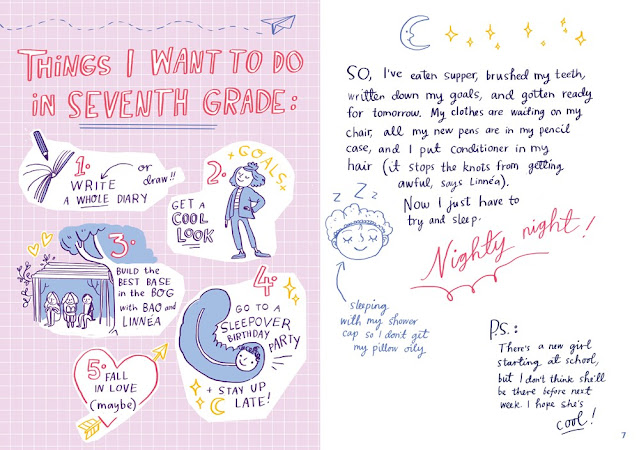 THINGS I WANT TO DO
IN SEVENTH GRADE:
1.
WRITE
or
draw!!
A WHOLE DIARY
2.
GOALS
GET A
COOL
LOOK
3.
BUILD the
BEST BASE
in the BOG
with BAO and
LINNÉA
4.
GO TO A
SLEEPOVER
BIRTHDAY
PARTY
+ STAY UP
LATE!
5. FALL
IN LOVE
(maybe)
SO, I've eaten supper, brushed my teeth,
written down my goals, and gotten ready
for tomorrow. My clothes are waiting on my
chair, all my new pens are in my pencil
case, and I put conditioner in my
hair (it stops the knots from getting
awful, says Linnéa).
Now I just have to
try and sleep.
Z Z Z
Nighty night!
sleeping
with my shower
cap so I don't get
my pillow oily
P.S.:
There's a new girl
starting at school,
but I don't think she'll
be there before next
week. I hope she's
cool!
7